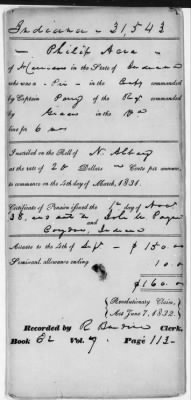 Indiana - 31,543
Philip Acra
of Harrison in the State of Indiana
who was a - Pri - in the Compy commanded
by Captain Parry of the Reg commanded
by Green in the Va
line for 6 mos
Inscribed on the Roll of N. Albany
at the rate of 20 Dollars Cents per annum,
to commence on the 4th day of March, 1831.
Certificate of Pension issued the 1st day of Novr
38, and John W Payne
Corydon, Indiana
Arrears to the 4th of Sept - $ 150.00
Semi-anl. allowance ending 10.0
$160.00
Revolutionary Claim,
Act June 7, 1832.
Recorded by R Clerk,
Book E2 Vol. 9 Page 113-